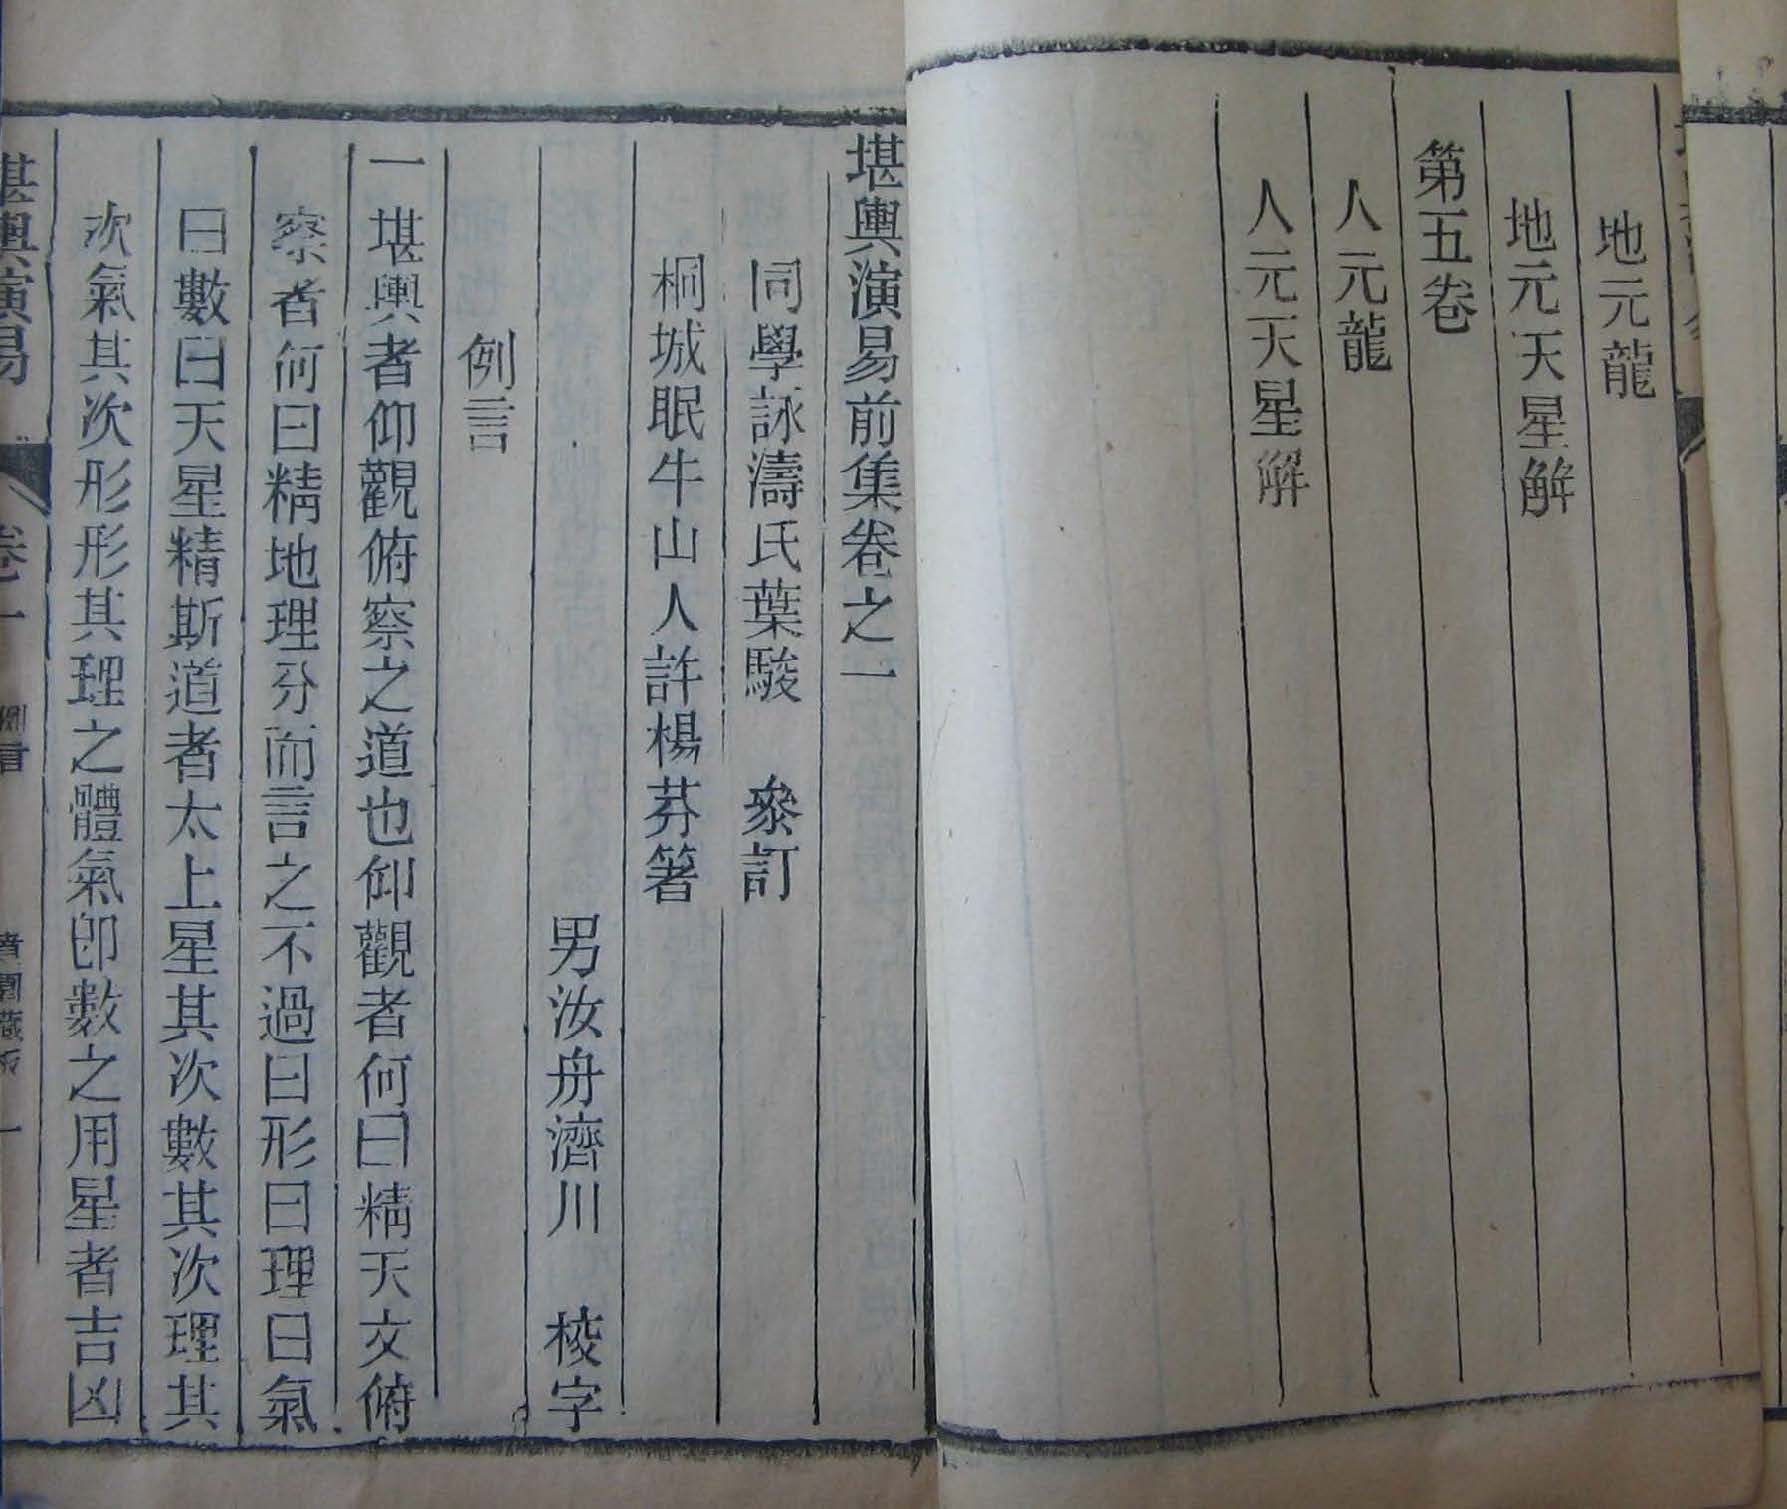 地元龍
地元天星解
第五卷
人元龍
人元天星解
堪輿演易前集卷之一
同學詠濤氏葉駿　叅訂
桐城眠牛山人許楊芬箸
男汝舟濟川　校字
例言
一堪輿者仰觀俯察之道也仰觀者何曰精天文俯
察者何曰精地理分而言之不過曰形曰理曰氣
曰數曰天星精斯道者太上星其次數其次理其
次氣其次形形其理之體氣卽數之用星者吉凶
堪輿演易　卷一　例言　藏板　一